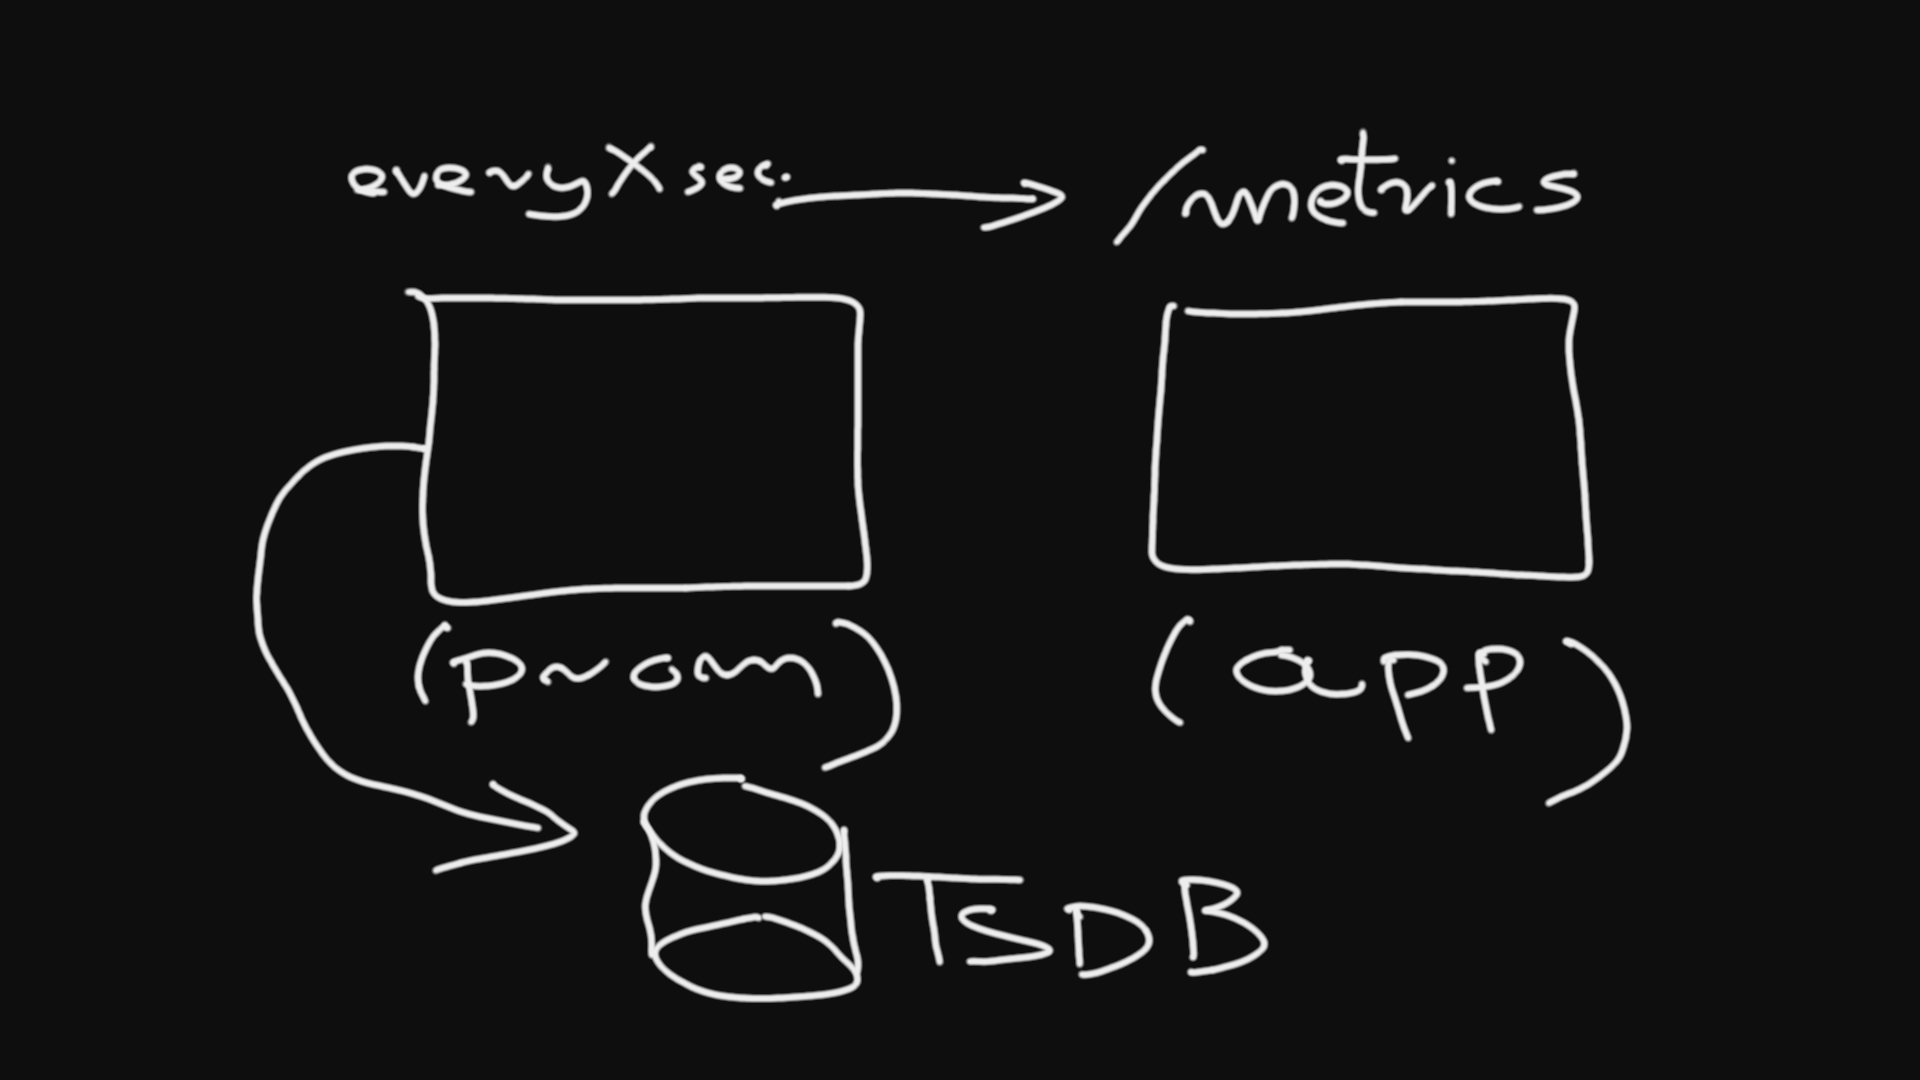 every X sec.
/metrics
(prom)
(app)
TSDB